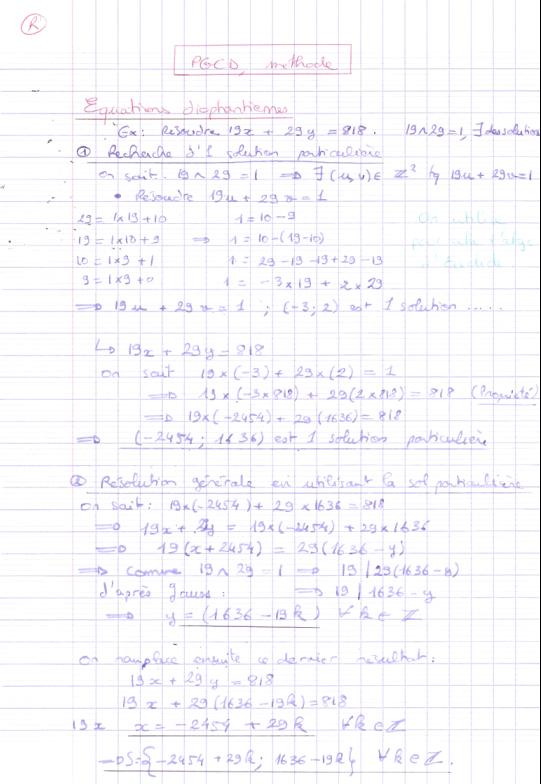 R
PGCD, méthode
Equations diophantiennes
Ex: Résoudre 19x + 29y = 818. 19∧29=1, ∃ des solutions
① Recherche d'1 solution particulière
on sait: 19∧29 = 1 ⟹ ∃(u,v)∈ ℤ² tq 19u+29v=1
• Résoudre 19u + 29v = 1
29 = 1×19+10 1 = 10-9
19 = 1×10+9 ⟹ 1 = 10-(19-10)
10 = 1×9+1 1 = 29-19-19+29-19
9 = 1×9+0 1 = -3×19 + 2×29
On utilise
par cela l'algo
d'Euclide
⟹ 19u + 29v = 1 ; (-3; 2) est 1 solution .....
↳ 19x + 29y = 818
on sait 19×(-3) + 29×(2) = 1
⟹ 19×(-3×818) + 29(2×818) = 818 (Propriété)
⟹ 19×(-2454) + 29(1636) = 818
⟹ (-2454; 1636) est 1 solution particulière
② Résolution générale en utilisant la sol particulière
on sait: 19×(-2454) + 29×1636 = 818
⟹ 19x + 29y = 19×(-2454) + 29×1636
⟹ 19(x+2454) = 29(1636-y)
⟹ Comme 19∧29 = 1 ⟹ 19 | 29(1636-y)
d'après Gauss: ⟹ 19 | 1636-y
⟹ y = (1636-19k) ∀k∈ℤ
On remplace ensuite ce dernier résultat:
19x + 29y = 818
19x + 29(1636-19k) = 818
19x x = -2454 + 29k ∀k∈ℤ
⟹ S={-2454+29k; 1636-19k} ∀k∈ℤ.